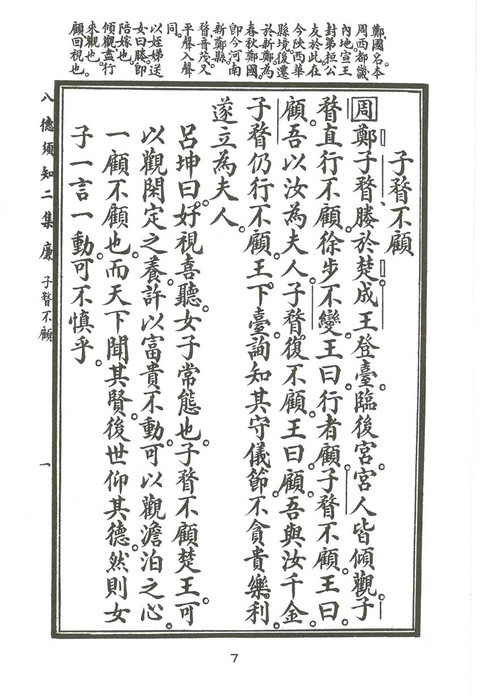 鄭國名本
周西都畿
內地宣王
封弟桓公
友於此在
今陝西華
縣境後遷
於新鄭為
春秋鄭國
即今河南
新鄭縣
瞀音茂又
平聲入聲
同
以姪娣送
女曰媵即
陪嫁也
傾觀盡行
來觀也
顧回視也
子瞀不顧
周鄭子瞀、媵於楚。成王登臺。臨後宮。宮人皆傾觀。子
瞀直行不顧。徐步不變。王曰。行者顧。子瞀不顧。王曰。
顧。吾以汝為夫人。子瞀復不顧。王曰。顧。吾與汝千金。
子瞀仍行不顧。王下臺。詢知其守儀節。不貪貴樂利。
遂立為夫人。
呂坤曰。好視喜聽。女子常態也。子瞀不顧楚王。可
以觀閑定之養。許以富貴不動。可以觀澹泊之心。
一顧不顧也。而天下聞其賢。後世仰其德。然則女
子一言一動。可不慎乎。
八德須知二集 廉 子瞀不顧 一
7